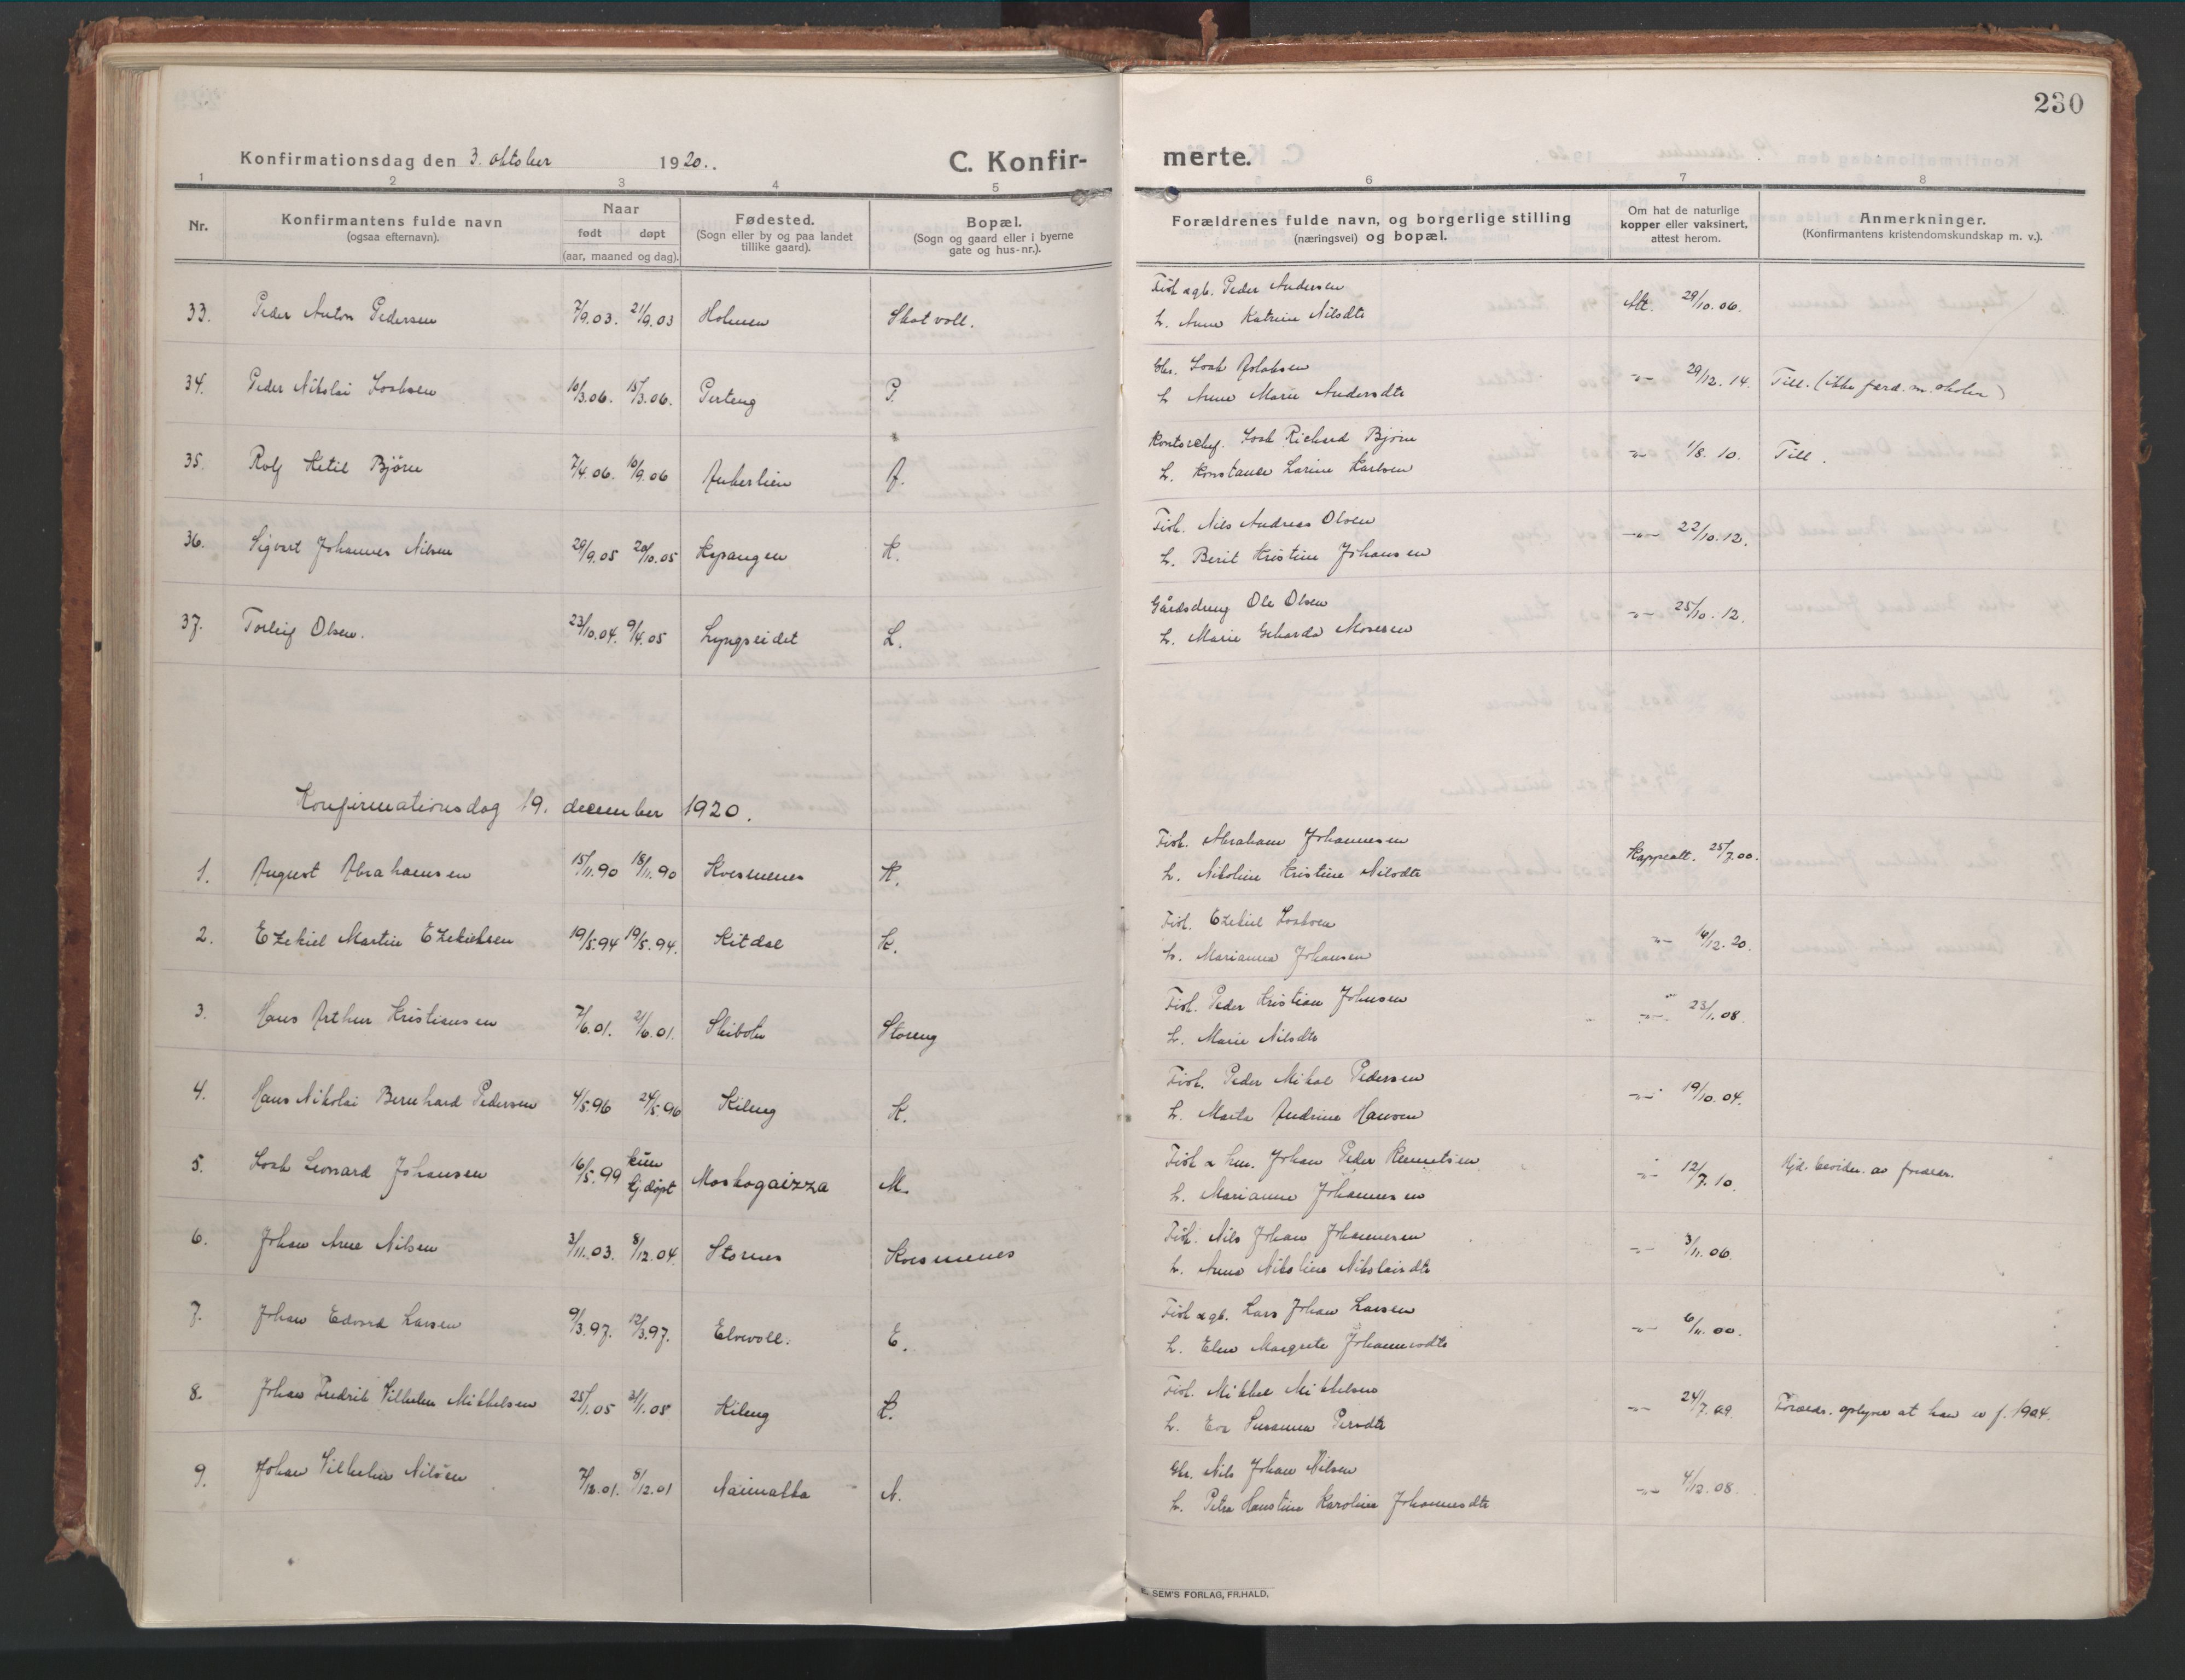 230
Konfirmationsdag den 3. oktober 1920.
C. Konfirmerte.
1 2 3 4 5 6 7 8
Nr.
Konfirmantens fulde navn
(ogsaa efternavn).
Naar
født døpt
(aar, maaned og dag).
Fødested.
(Sogn eller by og paa landet
tillike gaard).
Bopæl.
(Sogn og gaard eller i byerne
gate og hus-nr.).
Forældrenes fulde navn, og borgerlige stilling
(næringsvei) og bopæl.
Om hat de naturlige
kopper eller vaksinert,
attest herom.
Anmerkninger.
(Konfirmantens kristendomskundskap m. v.).
33. Peder Anton Pedersen 7/9.03. 21/9.03 Holmen Skatvoll. Fisk. & gb. Peder Andersen
h. Anne Katrine Nilsdtr Att. 29/10.06.
34. Peder Nikolai Isaksen 10/3.06. 15/3.06. Perteng P. Gbr. Isak Isaksen
h. Anne Marie Andersdtr -"- 29/12.14. Till. (ikke færd. m. skolen)
35. Rolf Ketil Bjørn 7/4.06. 10/9.06 Aukerlien A. Kontorchef. Isak Richard Bjørn
h. Konstance Larine Karlsen -"- 1/8.10. Till.
36. Sigvart Johannes Nilsen 29/9.05 20/10.05 Kopangen K. Fisk. Nils Andreas Olsen
h. Berit Kristine Johansen -"- 22/10.12.
37. Torleif Olsen. 23/10.04. 9/4.05 Lyngseidet L. Gårdsdreng Ole Olsen
h. Marie Geharda Mosesen -"- 25/10.12.
Konfirmationsdag 19. december 1920.
1. August Abrahamsen 15/11.90 18/11.90 Kvesmenes K. Fisk. Abraham Johannesen
h. Nikoline Kristine Nilsdtr Koppeatt. 25/7.00.
2. Ezekiel Martin Ezekielsen 19/5.94 19/5.94. Kitdal K. Fisk. Ezekiel Isaksen
h. Marianna Johansen -"- 14/12.20.
3. Hans Arthur Kristiansen 7/6.01. 21/6.01. Skibotn Storeng Fisk. Peder Kristian Johnsen
h. Marie Nilsdtr -"- 23/1.08.
4. Hans Nikolai Bernhard Pedersen 4/5.96 24/5.96 Kileng K. Fisk. Peder Mikal Pedersen
h. Marta Andrine Hansen -"- 19/10.04.
5. Isak Leonard Johansen 16/5.99 kun hjdøpt Moskogaizza M. Fisk & lm. Johan Peder Remmetsen
h. Marianne Johannesen -"- 12/7.10. Hjd. bevidn. av forældr.
6. Johan Arne Nilsen 3/11.03. 8/12.04. Stornes Kvesmenes Fisk. Nils Johan Johannesen
h. Anna Nikoline Nikolaisdtr -"- 3/11.06.
7. Johan Edvard Larsen 9/3.97. 12/3.97. Elvevoll. E. Fisk & gb. Lars Johan Larsen
h. Elen Margrete Johannesdtr -"- 6/11.00.
8. Johan Fredrik Vilhelm Mikkelsen 25/1.05 31/1.05 Kileng K. Fisk. Mikkel Mikkelsen
h. Eva Susanna Persdtr -"- 24/7.09. Forældr. oplyser at han er f. 1904.
9. Johan Vilhelm Nilsen 7/12.01. 8/12.01 Naimakka N. Gbr. Nils Johan Nilsen
h. Petra Hanstine Karoline Johannesdtr -"- 4/12.08.
SEM'S FORLAG, FR.HALD.